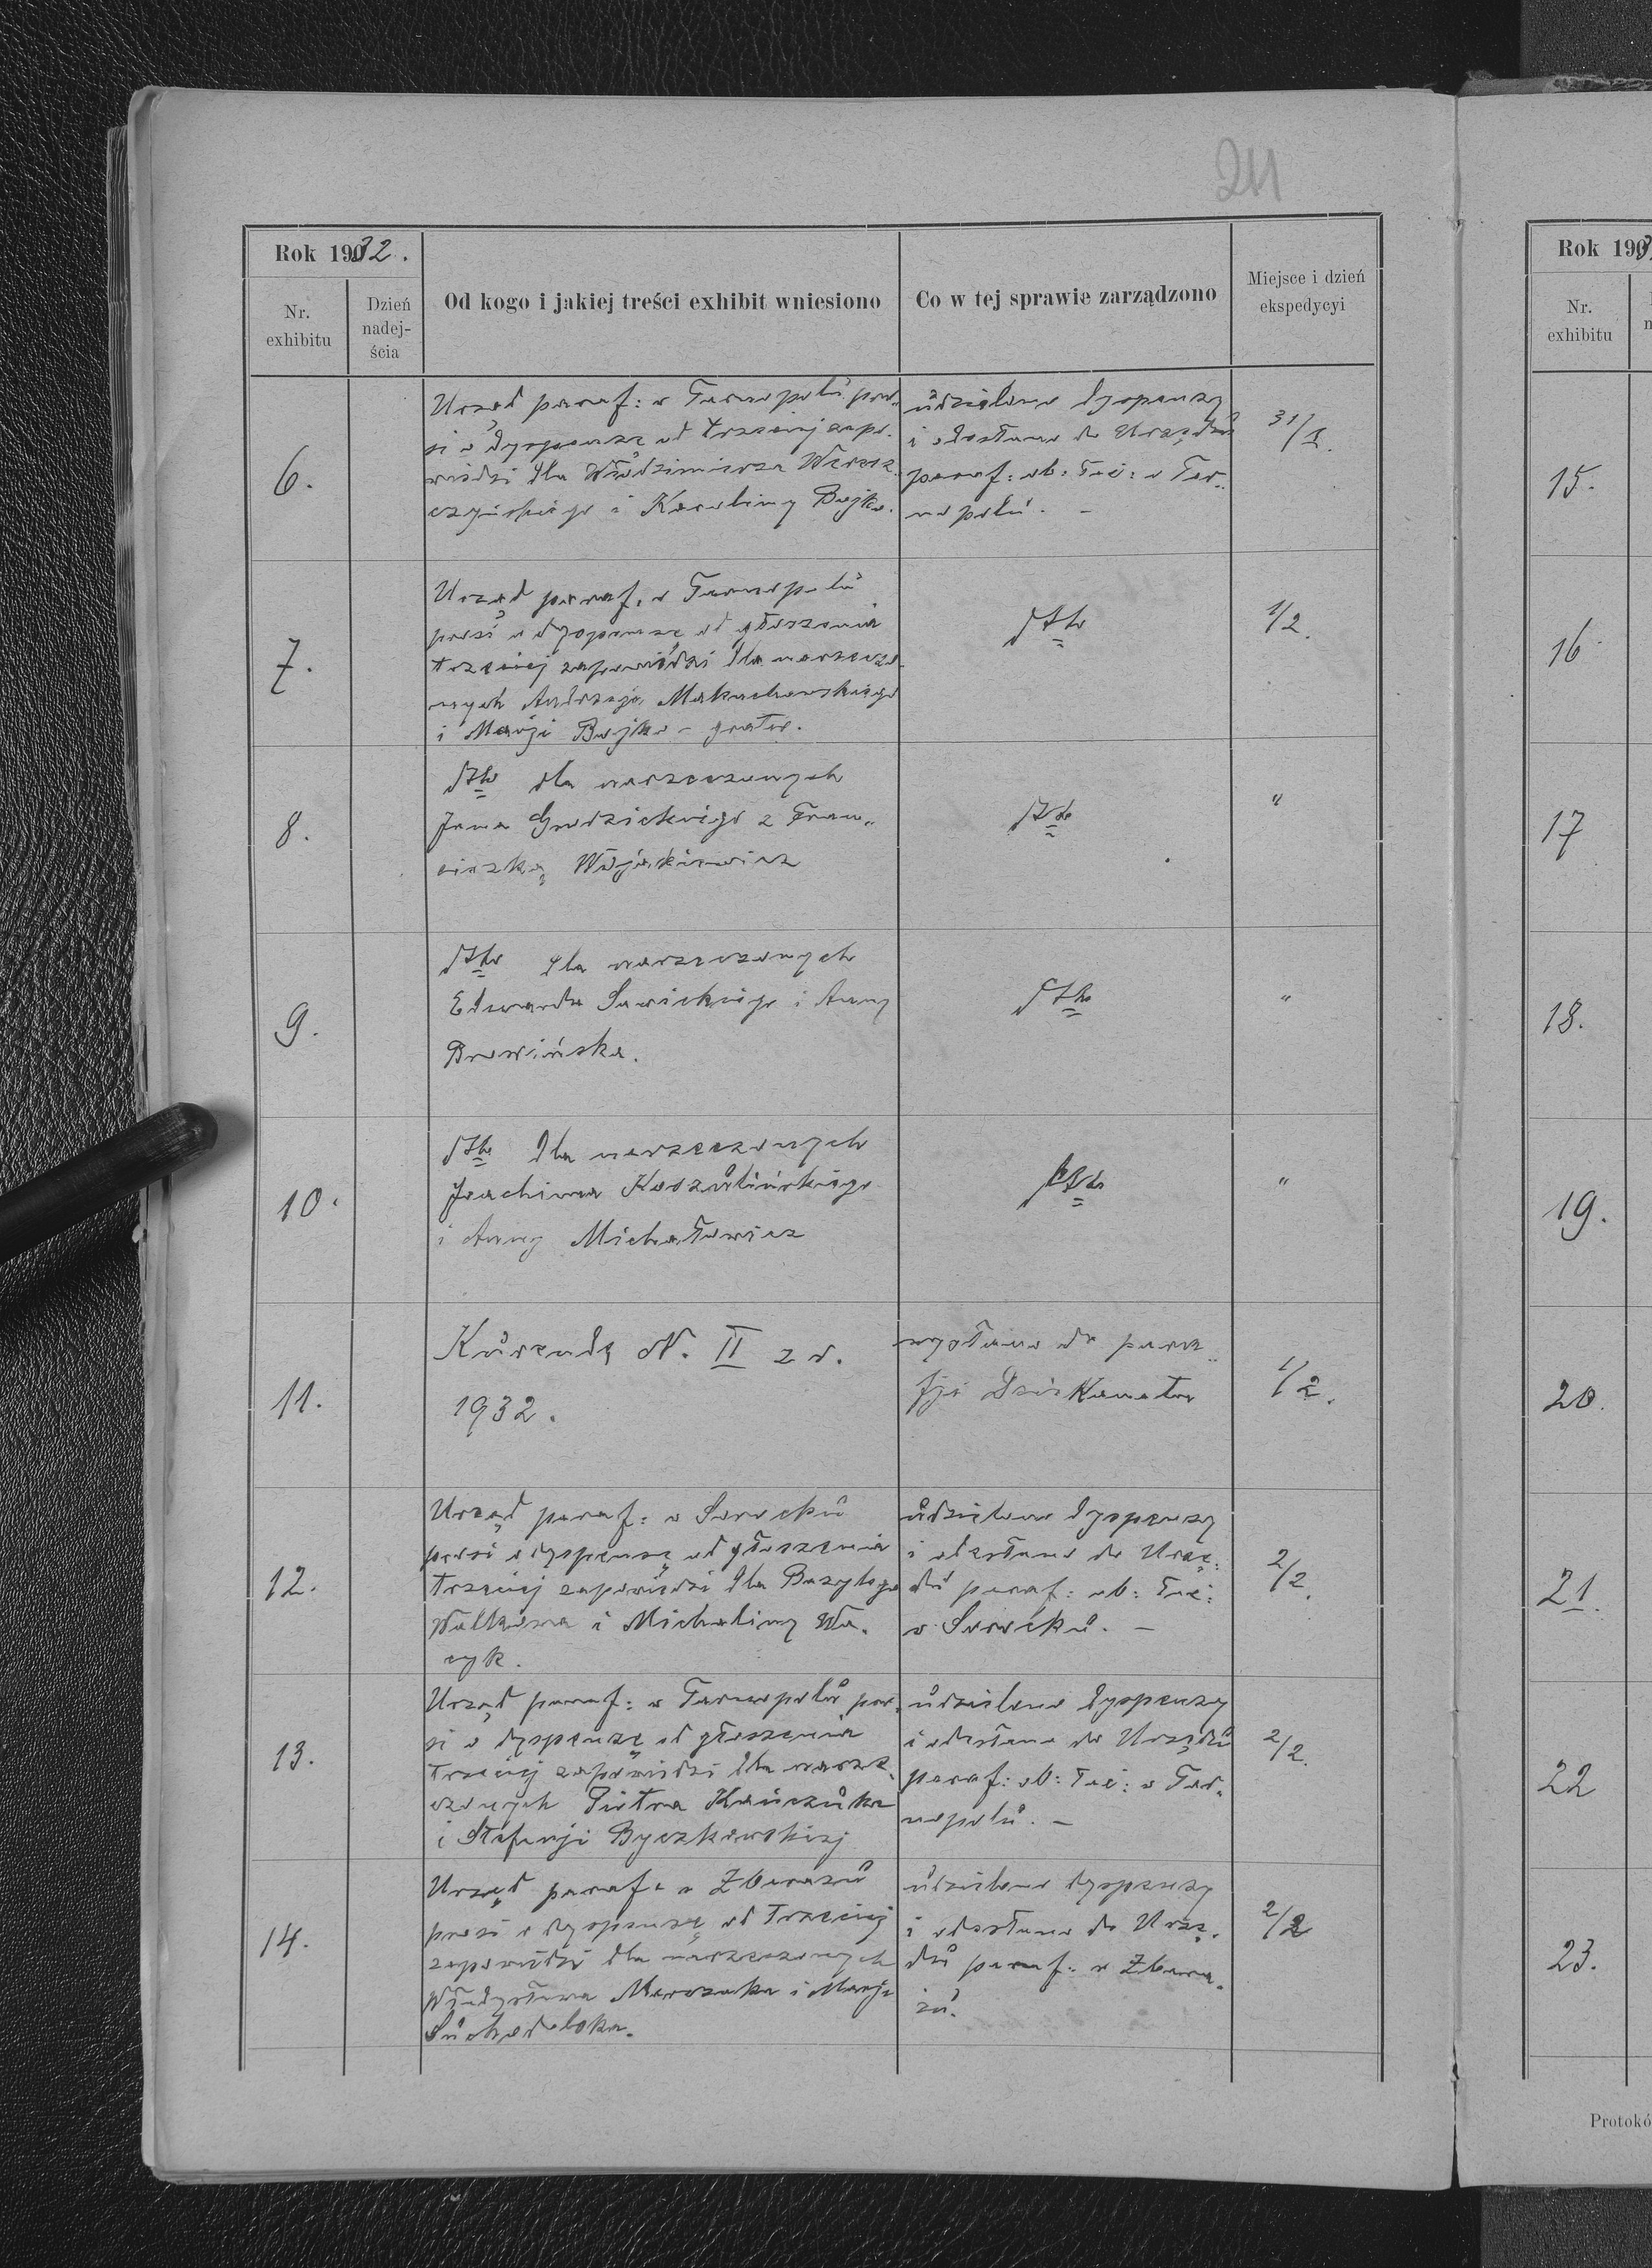 211
Rok 1932.
Nr. exhibitu
Dzień nadej-ścia
Od kogo i jakiej treści exhibit wniesiono
Co w tej sprawie zarządzono
Miejsce i dzień ekspedycyi
6.
Urząd paraf: w Tarnopolu pro„
si o dyspensę od trzeciej zapo„
wiedzi dla Włodzimierza
czyńskiego i Karoliny Bojko.
udzielono dyspensy
i odesłano do Urzędu
paraf: ob: łać: w Tar„
nopolu. –
31/1.
7.
Urząd paraf. w Tarnopolu
prosi o dyspensę od głoszenia
trzeciej zapowiedzi dla narzeczo„
nych Andrzeja Makachowskiego
i Marji Bojko – gratis.
dtto
1/2.
8.
dtto dla narzeczonych
Jana Grodzickiego z Fran„
ciszką Wójakiewicz
dtto
"
9.
dtto dla narzeczonych
Edwarda Sawickiego i Anny
Browińska.
dtto
"
10.
dtto dla narzeczonych
Joachima Koszulińskiego
i Anny Michałowicz
dtto
"
11.
Kurendę N. II z r.
1932.
wysłano do para„
fji Dziekanatu
1/2.
12.
Urząd paraf: w Sorocku
prosi o dyspensę od głoszenia
trzeciej zapowiedzi dla Bazylego
i Michaliny Wa„
cyk.
udzielono dyspensy
i odesłano do Urzę„
du paraf: ob: łać:
w Sorocku. –
2/2.
13.
Urząd paraf: w Tarnopolu pro„
si o dyspensę od głoszenia
trzeciej zapowiedzi dla narze„
czonych Piotra Kańczuka
i Stefanji Byczkowskiej
udzielono dyspensy
i odesłano do Urzędu
paraf: ob: łać: w Tar„
nopolu. –
2/2.
14.
Urząd paraf. w Zbarażu
prosi o dyspensę od trzeciej
zapowiedzi dla narzeczonych
Władysława Marczaka i Marji
Suchodolska.
udzielono dyspensy
i odesłano do Urzę„
du paraf: w Zbara„
żu.
2/2
Rok 193
Nr. exhibitu
15.
16
17
18.
19.
20.
21.
22
23.
Protokó